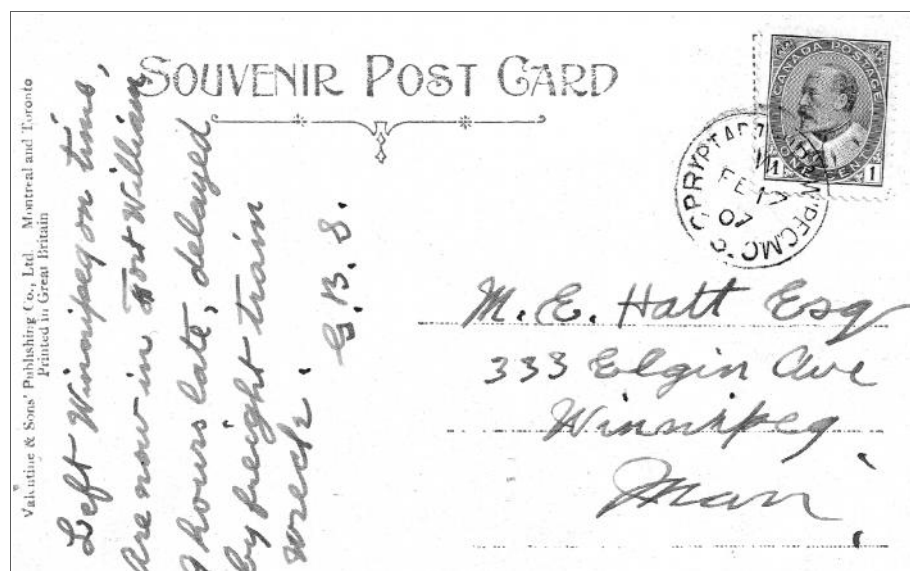 SOUVENIR POST CARD
Valentine & Sons' Publishing Co., Ltd. Montreal and Toronto
Printed in Great Britain
Left Winnipeg on time,
Are now in Fort William
hours late, delayed
by freight train
wreck. G.B.S.
CANADA POSTAGE
ONE CENT
1 1
FE 17
07
M. E. Hatt Esq
333 Elgin Ave
Winnipeg
Man